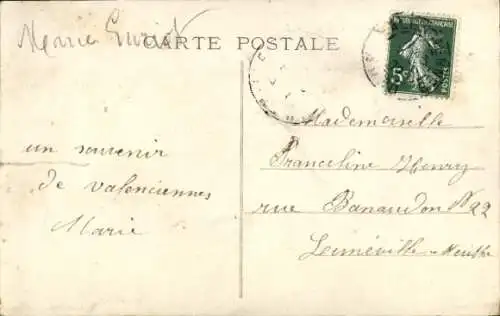 Marie
CARTE POSTALE
5c
POSTES
un souvenir
de Valenciennes
Marie
Mademoiselle
Franceline Henry
rue Banaudon N 22
Lunéville - Meurthe